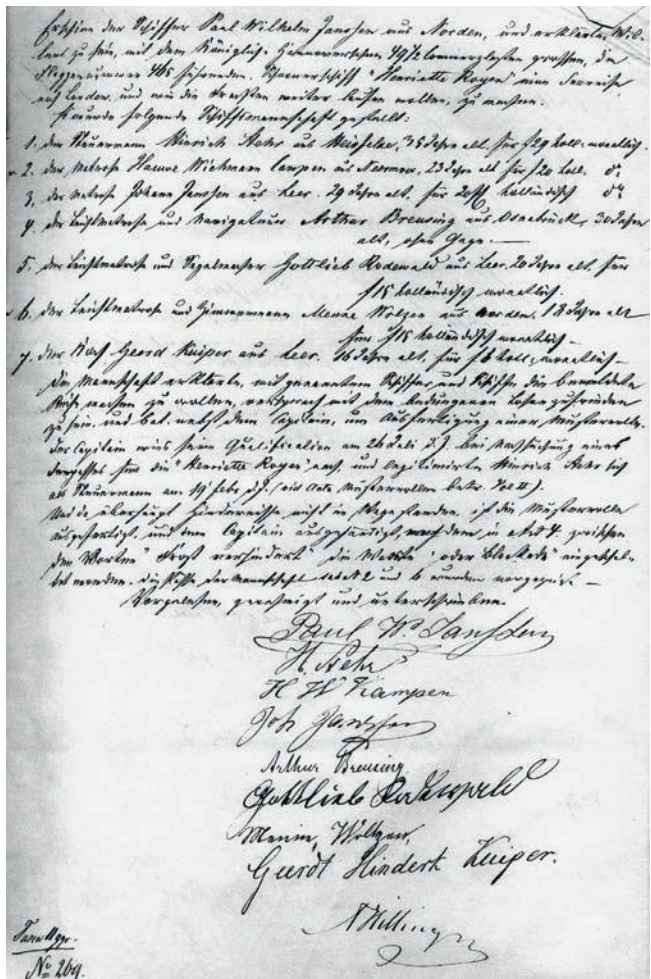 Erschien der Schiffer Paul Wilhelm Janssen aus Norden, und erklärte, Wil-
lens zu sein, mit dem Königlich Hannoverschen 49½ Commerzlasten grossen, die
Flaggenummer 465 führenden Schoonerschiff "Henriette Rogen" eine Seereise
nach London, und wie die Frachten weiter lauten wollen, zu machen.
Es wurde folgende Schiffsmannschaft gestellt:
1. der Steuermann Hinrich Aehr aus, 35 Jahre alt, für f29 holl. monatlich.
2. der Matrose Harm Wichmann Campen aus Neermoor, 23 Jahre alt für f20 holl. do
3. der Matrose Johann Janssen aus Leer. 29 Jahre alt, für 20 holländisch do
4. der Leichtmatrose und Navigateur Arthur Breusing aus Osnabrück, 30 Jahre
alt, ohne Gage.—
5. der Leichtmatrose und Segelmacher Gottlieb Rodewald aus Leer. 20 Jahre alt, für
f15 holländisch monatlich.
6. der Leichtmatrose und Zimmermann Menne Woltzen aus Norden. 18 Jahre alt
für f15 holländisch monatlich—
7. der Koch Geerd Kuiper aus Leer. 16 Jahre alt, für f6 holl. monatlich—
Die Mannschaft erklärte, mit genanntem Schiffer und Schiffe die bemeldete
Reise machen zu wollen, versprach mit den bedungenen Lohn zufrieden
zu sein, und bat nebst dem Capitain, um Ausfertigung einer Musterrolle.
Der Capitain wies seine Qualification am 26 Juli d. J. bei Nachsuchung eines
Seepasses für die "Henriette Rogen" nach, und legitimirte Hinrich Aehr sich
als Steuermann am 19 Febr d. J. (vid. Acta Musterrollen betr. Vol II).
Und da überhaupt Hindernisse nicht im Wege standen, ist die Musterrolle
ausgefertigt, und dem Capitain ausgehändigt, nachdem in Art 4. zwischen
den Worten "Frost verhindert" die Worte "oder Blockade" eingeschal-
tet worden. Die Pässe der Mannschaft sub N 2 und 6 wurden vorgezeigt—
Vorgelesen, genehmigt und unterschrieben.
Paul W. Janssen
H Aehr
H W Kampen
Joh Janssen
Arthur Breusing
Gottlieb Rodewald
Menne, Woltzen,
Geerdt Hindert Kuiper.
A Hillingh
No 269.